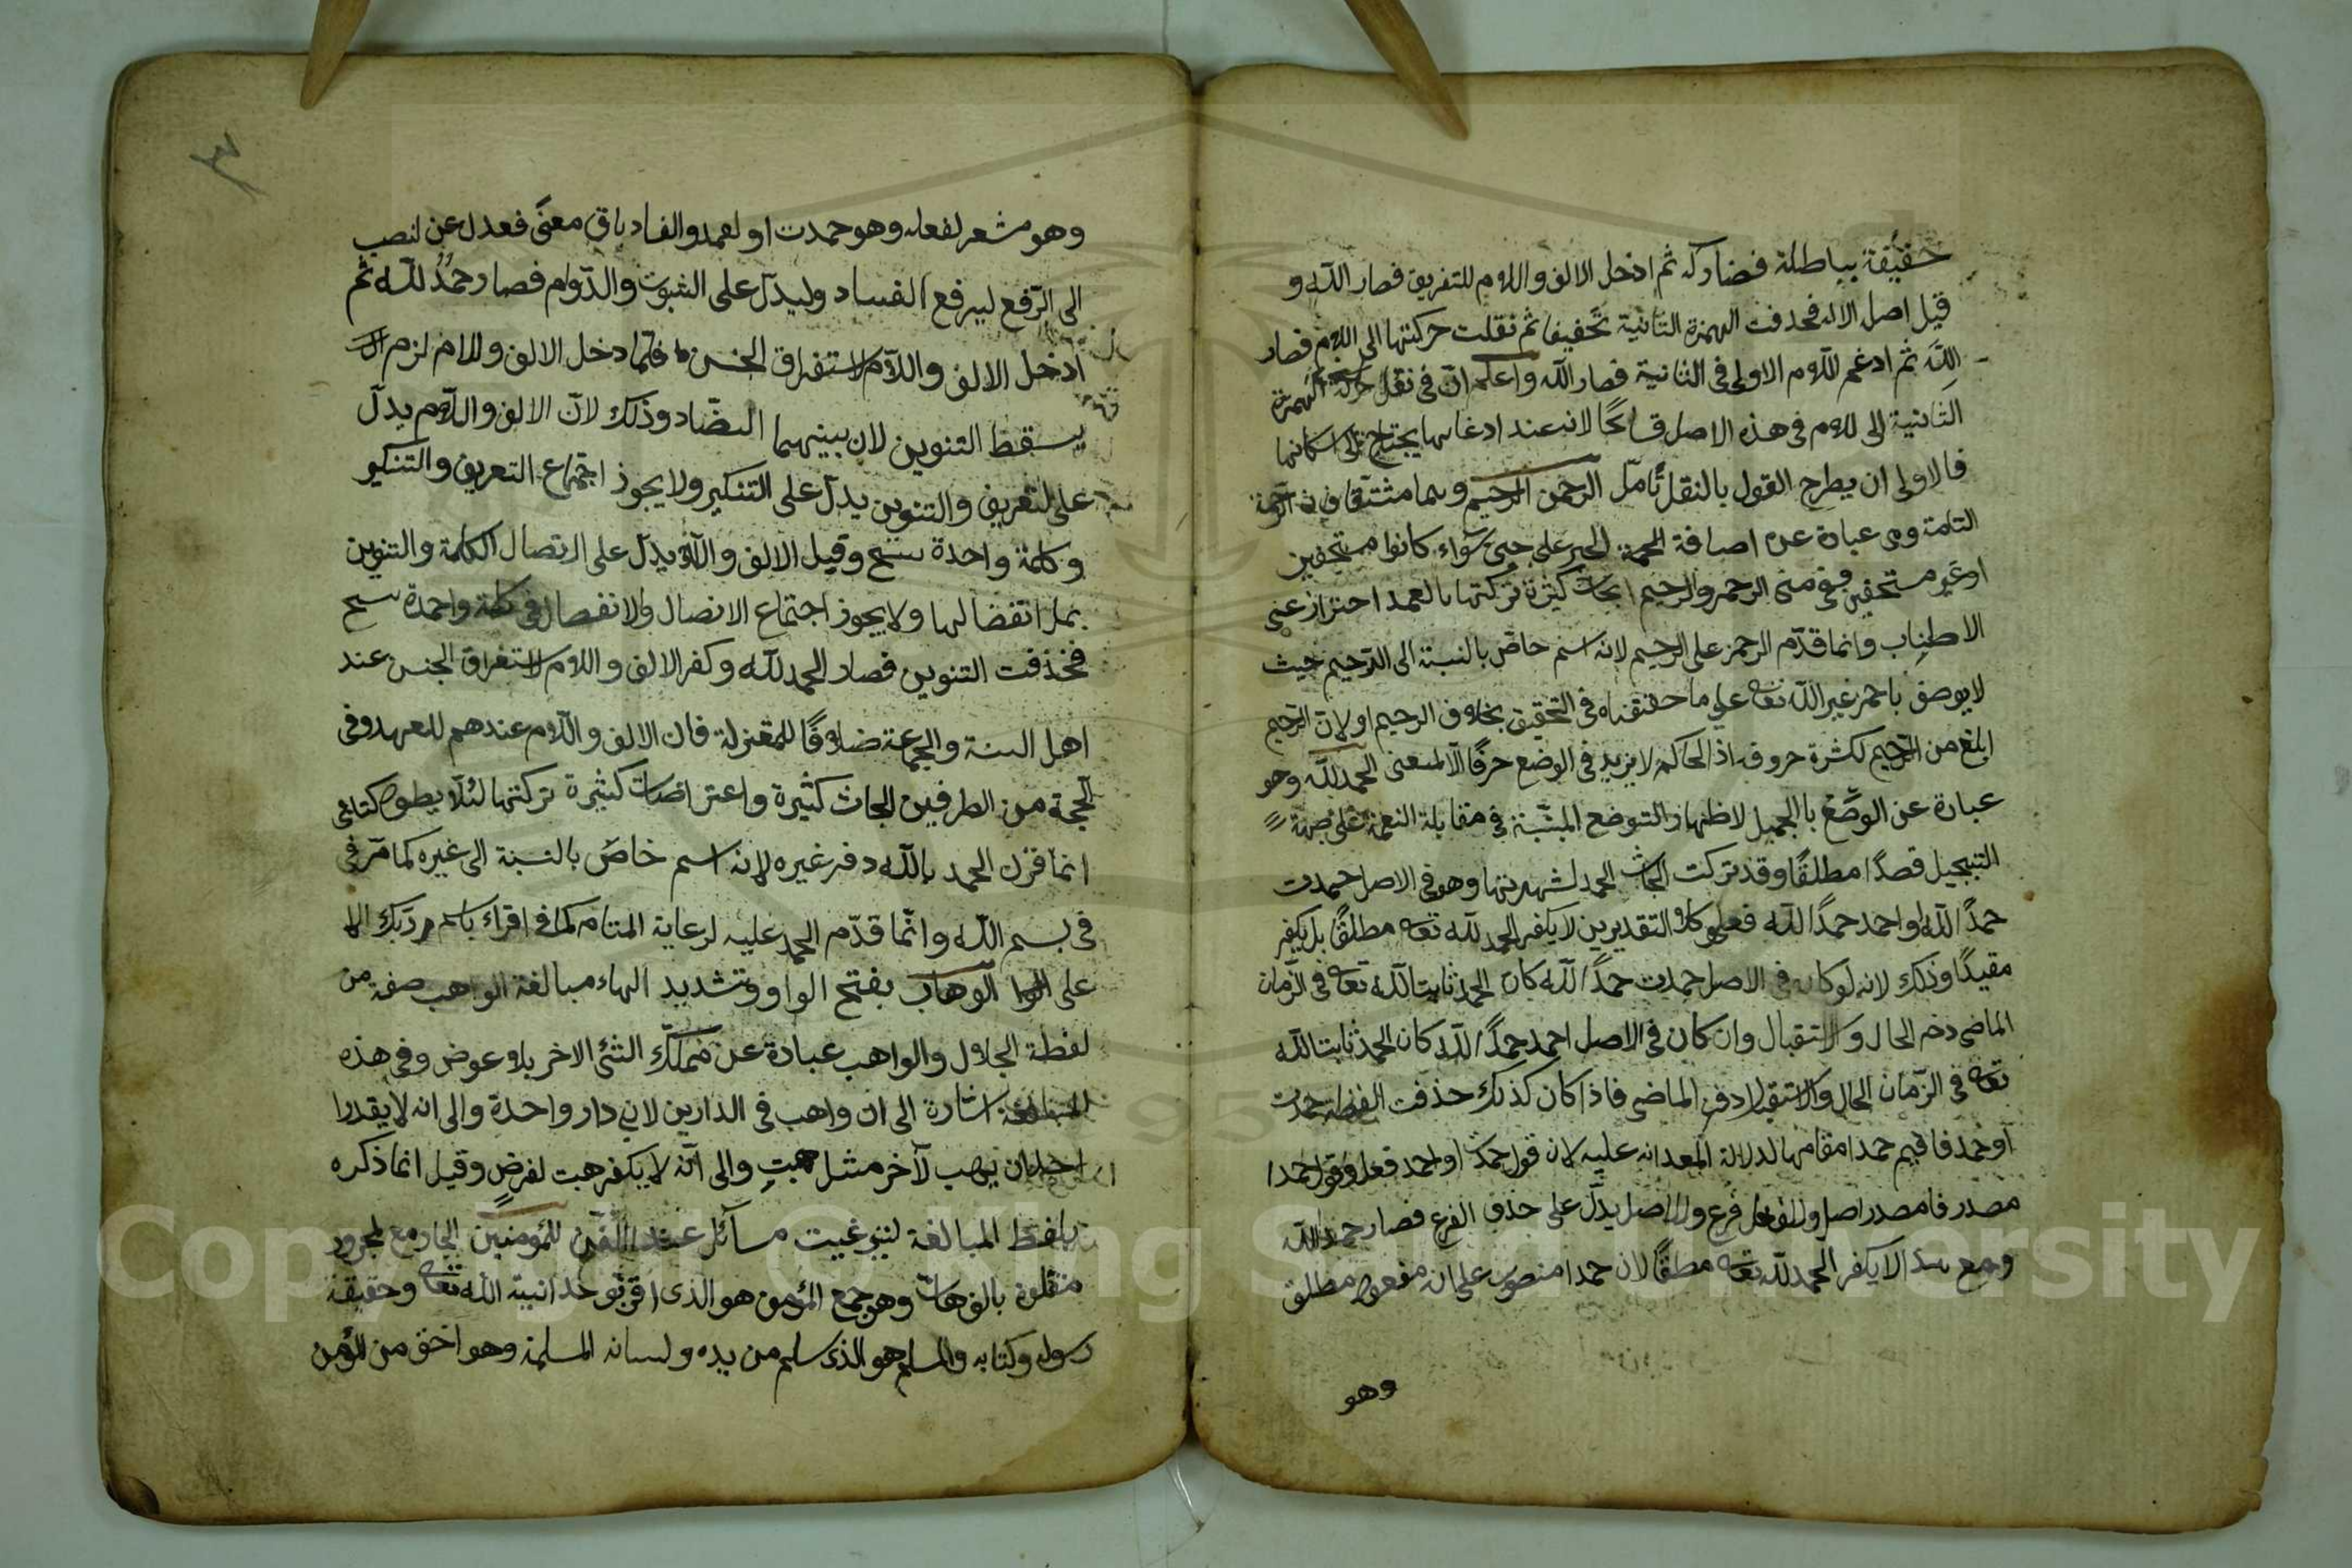 حقيقة بباطلة فصار كه ثم ادخل الالف واللام للتفريق فصار الله و
قيل اصل الاله فحذفت الهمزة الثانية تخفيفا ثم نقلت حركتها الى اللام فصار
اللَه ثم ادغم اللام الاولى فى الثانية فصار الله واعلم ان فى نقل حركة الهمزة
الثانية الى اللام فى هذه الاصل لانه عند ادغامها يحتاج الى اسكانها
فالاولى ان يطرح القول بالنقل تأمل الرحمن الرحيم وهما مشتقان من الرحمة
التامة وهى عبارة عن اضافة الخير على سواء كانوا مستحقين
او غير مستحقين ففى معنى الرحمن والرحيم ابحاث كثيرة تركتها بالعمد احتراز عن
الاطناب وانما قدّم الرحمن على الرحيم لانه اسم خاصّ بالنسبة الى الرّحيم حيث
لا يوصف باحمر غير الله تعا على ما حققناه فى التحقيق بخلاف الرحيم او لانّ الرحيم
ابلغ من الرّحيم لكثرة حروفه اذ الحاكم لا يزيد فى الوضع حرفًا الّا لمعنى الحمد لله وهو
عبارة عن الوصف باالجميل لاظهار فى مقابلة النعمة على جهة
التبجيل قصدًا مطلقًا وقد تركت ابحاث الحمد لشهرتها وهو فى الاصل حمدت
حمدًا لله او احمد حمدًا لله فعلى كلا التقديرين لا يكفر الحمد لله تعا مطلقًا بل يكفر
مقيدًا وذلك لانه لو كان فى الاصل حمدت حمدًا لله كان الحمد ثابتا لله تعا فى الزّمان
الماضى دخم الحال والاستقبال وان كان فى الاصل احمد حمدًا لله كان الحمد ثابتا لله
تعا فى الزّمان الحال والاستقبال دفن الماضى فاذا كان كذلك حذفت حمدت
او حمد فاقيم حمدا مقامها لدلالة عليه لان قول حمدت او احمد فعل وقول حمدا
مصدر فامصدر اصل والفعل فرع والاصل يدلّ على حذف الفرع فصار حمدا لله
ومع هذا لا يكفر الحمد لله تعا مطلقًا لان حمدا منصوب على انه مفعول مطلق
وهو
٣
وهو مشعر لفعله وهو حمدت او لعمد والفاد باق معنًى فعدل عن لنصب
الى الرّفع ليرفع الفساد وليدلّ على الثبوت والدّوام فصار حمدٌ لله ثم
ادخل الالف واللّام لاستغراق الجنس فلمّا دخل الالف واللام لزم ان
يسقط التنوين لان بينهما التضّاد وذلك لانّ الالف واللّام يدلّ
على لتعريف والتنوين يدلّ على التنكير ولا يجوز اجتماع التعريف والتنكير
و كلمة واحدة سح وقيل الالف والّلام يدلّ على الاتصال الكلمة والتنوين
ولا يجوز اجتماع الاتصال والانفصال فى كلمة واحدة سح
فحذفت التنوين فصار الحمد لله وكفر الالف واللام لاستغراق الجنس عند
اهل السنة والجماعة ضلافًا للمعتزلة فان الالف والّلام عندهم للعهد وفى
الحجة من الطرفين ابحاث كثيرة واعتراضات كثيرة تركتها لئلّا يطول كتابى
انما قرن الحمد بالله دفر غيره لانه اسم خاصّ بالنسبة الى غيره كما مرّ فى
فى بسم الله وانّما قدّم الحمد عليه لرعاية المقام كما فى اقراء باسم ربّك
على الوهاب بفتح الواو وتشديد الهاء مبالغة الواهب صفة من
لفظة الجلال والواهب عبارة عن تملّك الشئ الاخر بلا عوض وفى هذه
اشارة الى ان واهب فى الدارين لا فى دار واحدة والى انه لا يقدرا
يهب لآخر مثل هبت والى انّه لا يكفر هبت لغرض وقيل انما ذكره
بلفظ المبالغة مسآئل للمؤمنين الجار مع لمجرور
بالوهاب وهو جمع المؤمن هو الذى اقر الله تعا وحقيقة
رسوله وكتابه والمسلم هو الذى سلم من يده ولسانه المسلمة وهو اخق من المؤمن